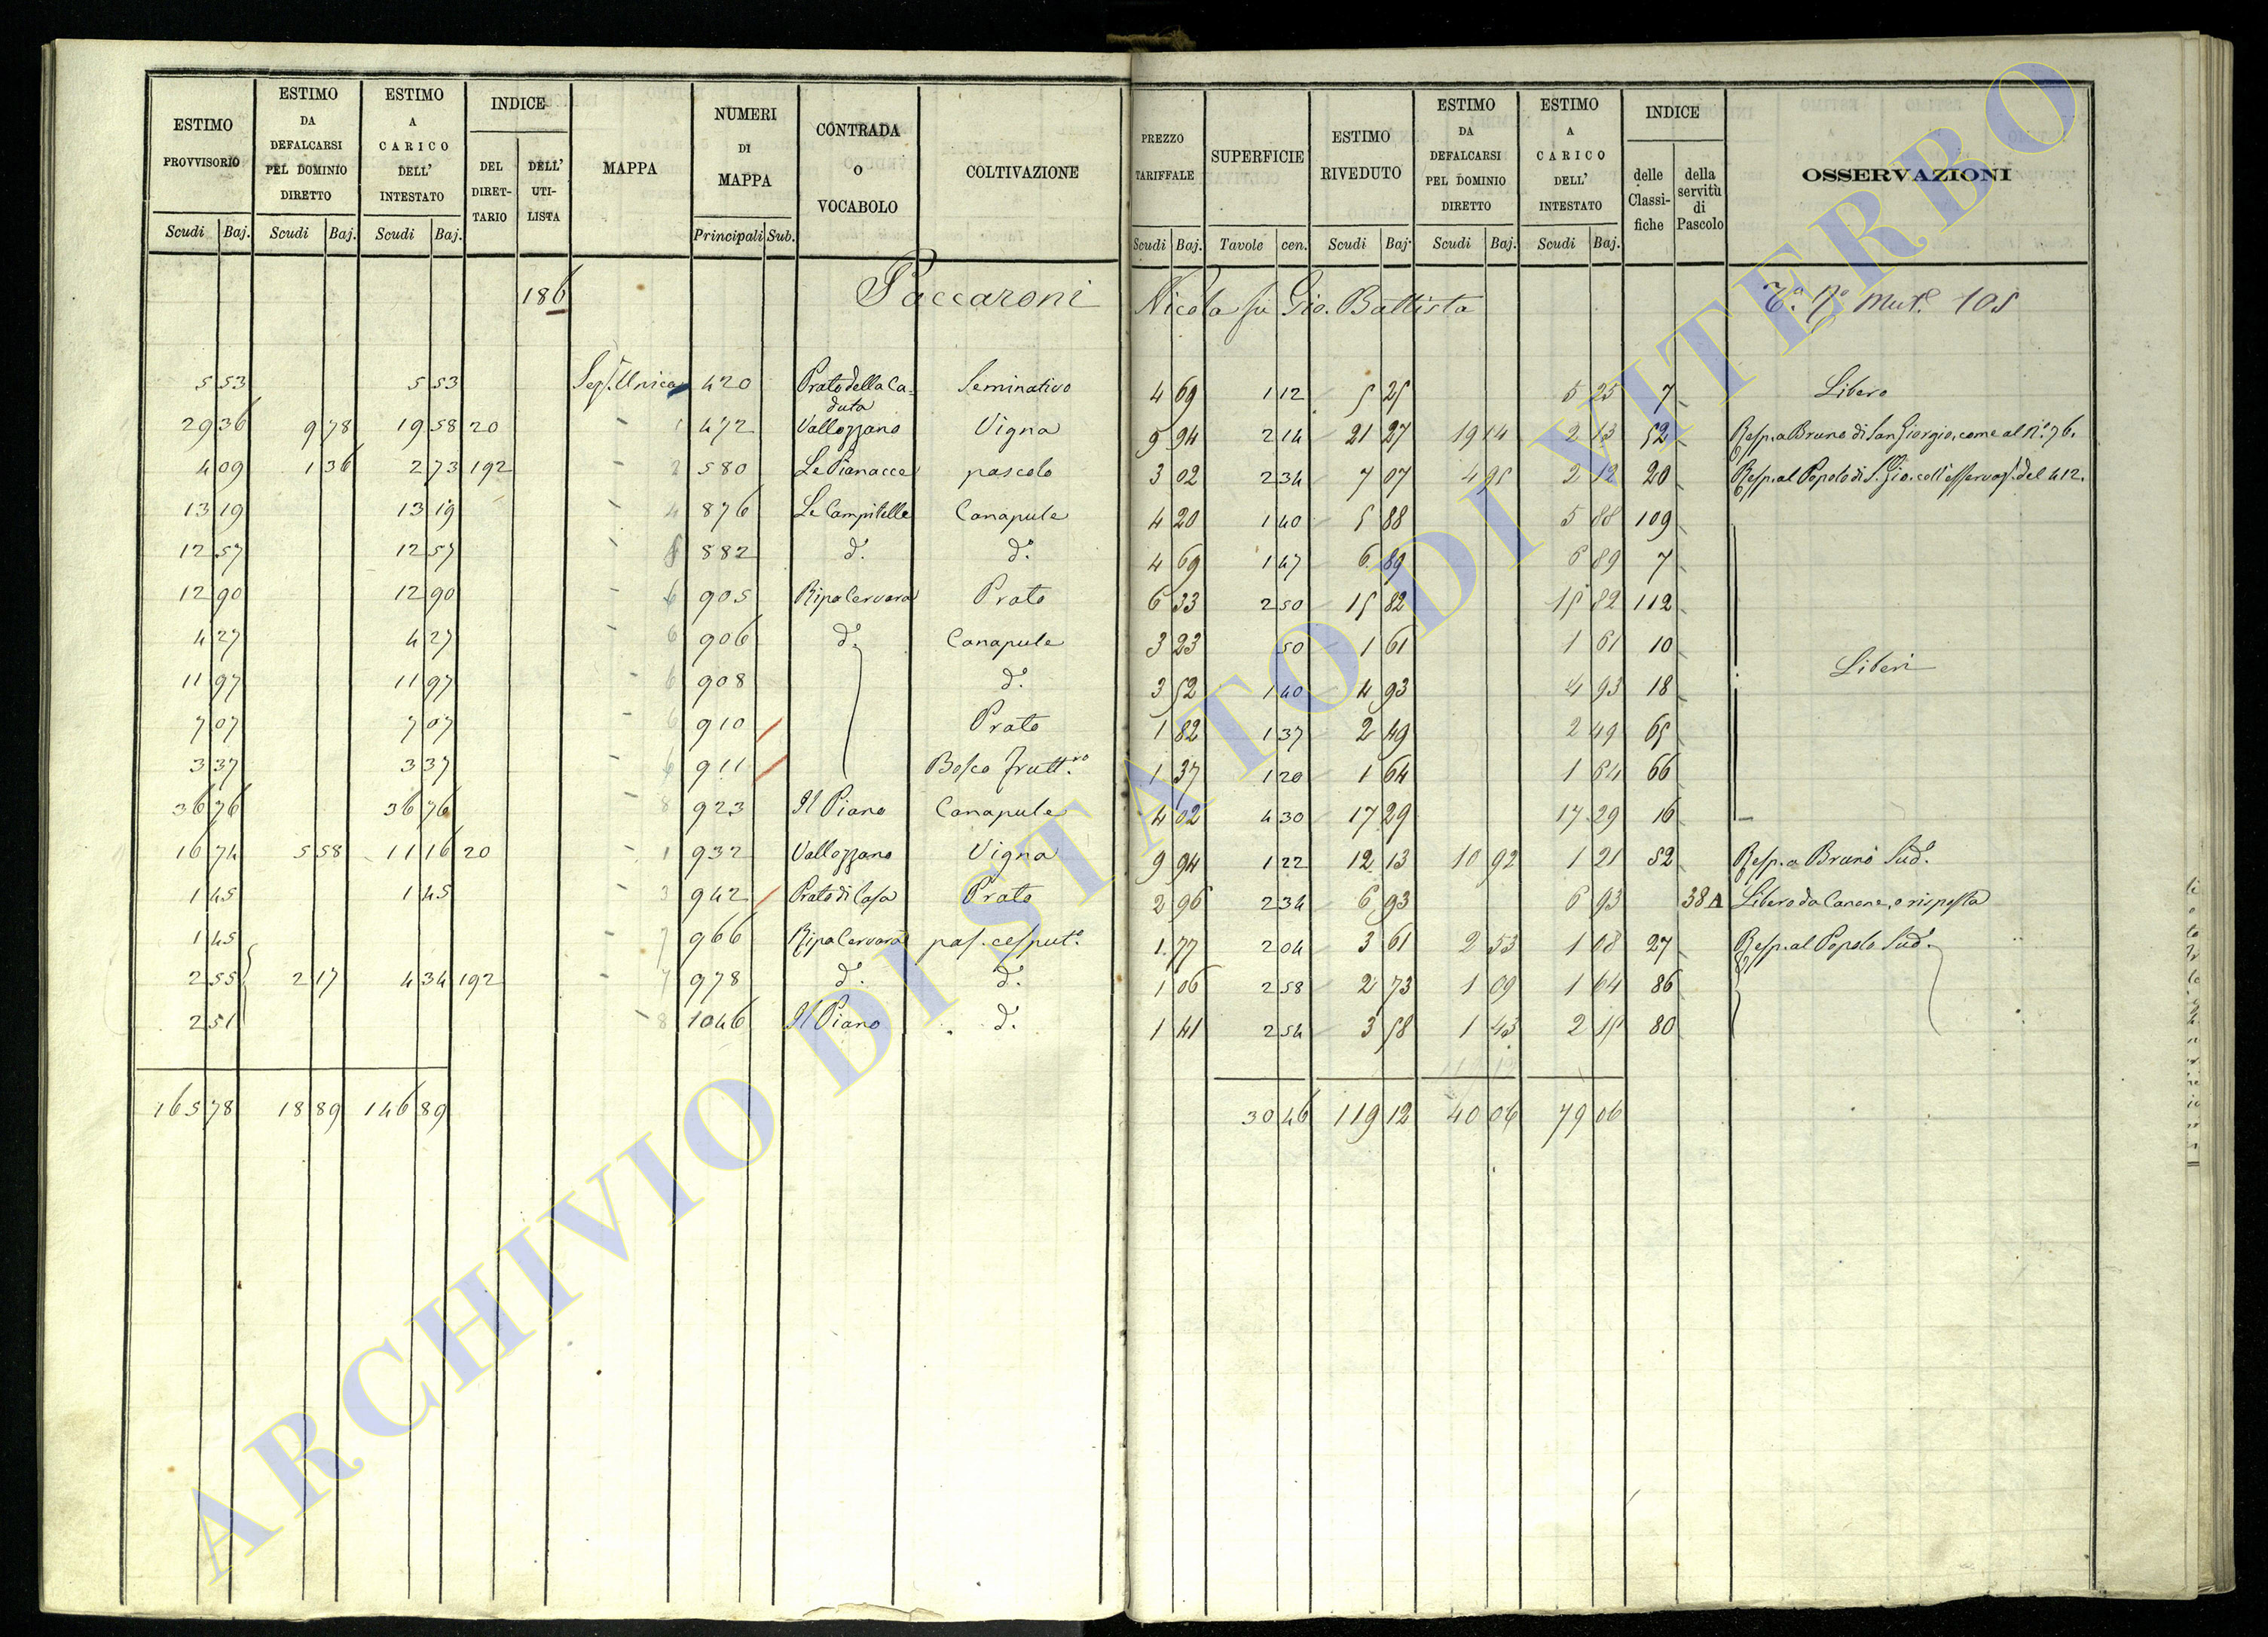 ESTIMO PROVVISORIO | ESTIMO DA DEFALCARSI PEL DOMINIO DIRETTO | ESTIMO A CARICO DELL' INTESTATO | INDICE | MAPPA | NUMERI DI MAPPA | CONTRADA O VOCABOLO | COLTIVAZIONE | PREZZO TARIFFALE | SUPERFICIE | ESTIMO RIVEDUTO | ESTIMO DA DEFALCARSI PEL DOMINIO DIRETTO | ESTIMO A CARICO DELL' INTESTATO | INDICE | OSSERVAZIONI
DEL DIRET-TARIO | DELL' UTI-LISTA | delle Classi-fiche | della servitù di Pascolo
Scudi Baj. | Scudi Baj. | Scudi Baj. | Principali Sub. | Scudi Baj. | Tavole cen. | Scudi Baj. | Scudi Baj. | Scudi Baj.
186 Paccaroni Nicola fu Gio. Battista 105
5 53 | 5 53 | Sez. Unica | 420 | Prato della Ca-duta | Seminativo | 4 69 | 1 12 | 5 25 | 5 25 | 7 | Libero
29 36 | 9 78 | 19 58 | 20 | 1 | 472 | Vallozzano | Vigna | 9 94 | 2 14 | 21 27 | 19 14 | 2 13 | 52 | Resp. a Bruno di San Giorgio, come al N.° 76.
4 09 | 1 36 | 2 73 | 192 | 2 | 580 | Le Pianacce | pascolo | 3 02 | 2 34 | 7 07 | 4 95 | 2 12 | 20 | Resp. al Popolo di S. Gio. coll'osservaz. del 412.
13 19 | 13 19 | 4 | 876 | Le Campitelle | Canapule | 4 20 | 1 40 | 5 88 | 5 88 | 109
12 57 | 12 57 | 882 | d.° | d.° | 4 69 | 1 47 | 6 89 | 6 89 | 7
12 90 | 12 90 | 6 | 905 | Ripa Cervara | Prato | 6 33 | 2 50 | 15 82 | 15 82 | 112
4 27 | 4 27 | 6 | 906 | d.° | Canapule | 3 23 | 50 | 1 61 | 1 61 | 10
11 97 | 11 97 | 6 | 908 | d.° | 3 52 | 1 40 | 4 93 | 4 93 | 18 | Liberi
7 07 | 7 07 | 6 | 910 | Prato | 1 82 | 1 37 | 2 49 | 2 49 | 65
3 37 | 3 37 | 6 | 911 | Bosco frutt.ro | 1 37 | 1 20 | 1 64 | 1 64 | 66
36 76 | 36 76 | 8 | 923 | Il Piano | Canapule | 4 02 | 4 30 | 17 29 | 17 29 | 16
16 74 | 5 58 | 11 16 | 20 | 1 | 932 | Vallozzano | Vigna | 9 94 | 1 22 | 12 13 | 10 92 | 1 21 | 52 | Resp. a Bruno Sud.°
1 45 | 1 45 | 3 | 942 | Prato di Casa | Prato | 2 96 | 2 34 | 6 93 | 6 93 | 38 A | Libero da Canone, o risposta
1 45 | 7 | 966 | Ripa Cervara | pas. cesput.° | 1 77 | 2 04 | 3 61 | 2 53 | 1 08 | 27 | Resp. al Popolo Sud.°
2 55 | 2 17 | 4 34 | 192 | 7 | 978 | d.° | d.° | 1 06 | 2 58 | 2 73 | 1 09 | 1 64 | 86
2 51 | 8 | 1046 | Il Piano | d.° | 1 41 | 2 54 | 3 58 | 1 43 | 2 15 | 80
165 78 | 18 89 | 146 89 | 30 46 | 119 12 | 40 06 | 79 06
ARCHIVIO DI STATO DI VITERBO